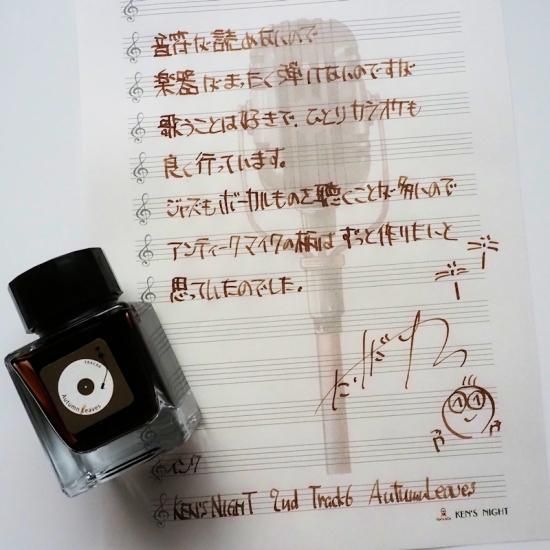 音符が読めないので
楽器がまったく弾けないのですが
歌うことは好きで、ひとりカラオケも
良く行っています。
ジャズもボーカルものを聴くことが多いので
アンティークマイクの柄は ずっと作りたいと
思っていたのでした。
だがだわ
TRACK6
Autumn Leaves
インク
KEN'S NIGHT 2nd Track6 AutumnLeaves
KEN'S NIGHT